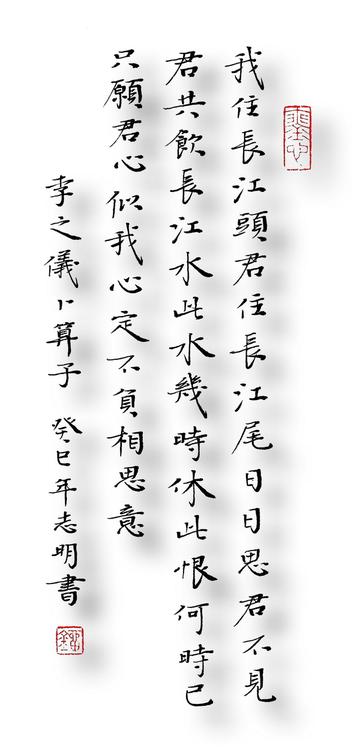 我住長江頭君住長江尾日日思君不見
君共飲長江水此水幾時休此恨何時已
只願君心似我心定不負相思意
李之儀卜算子 癸巳年志明書